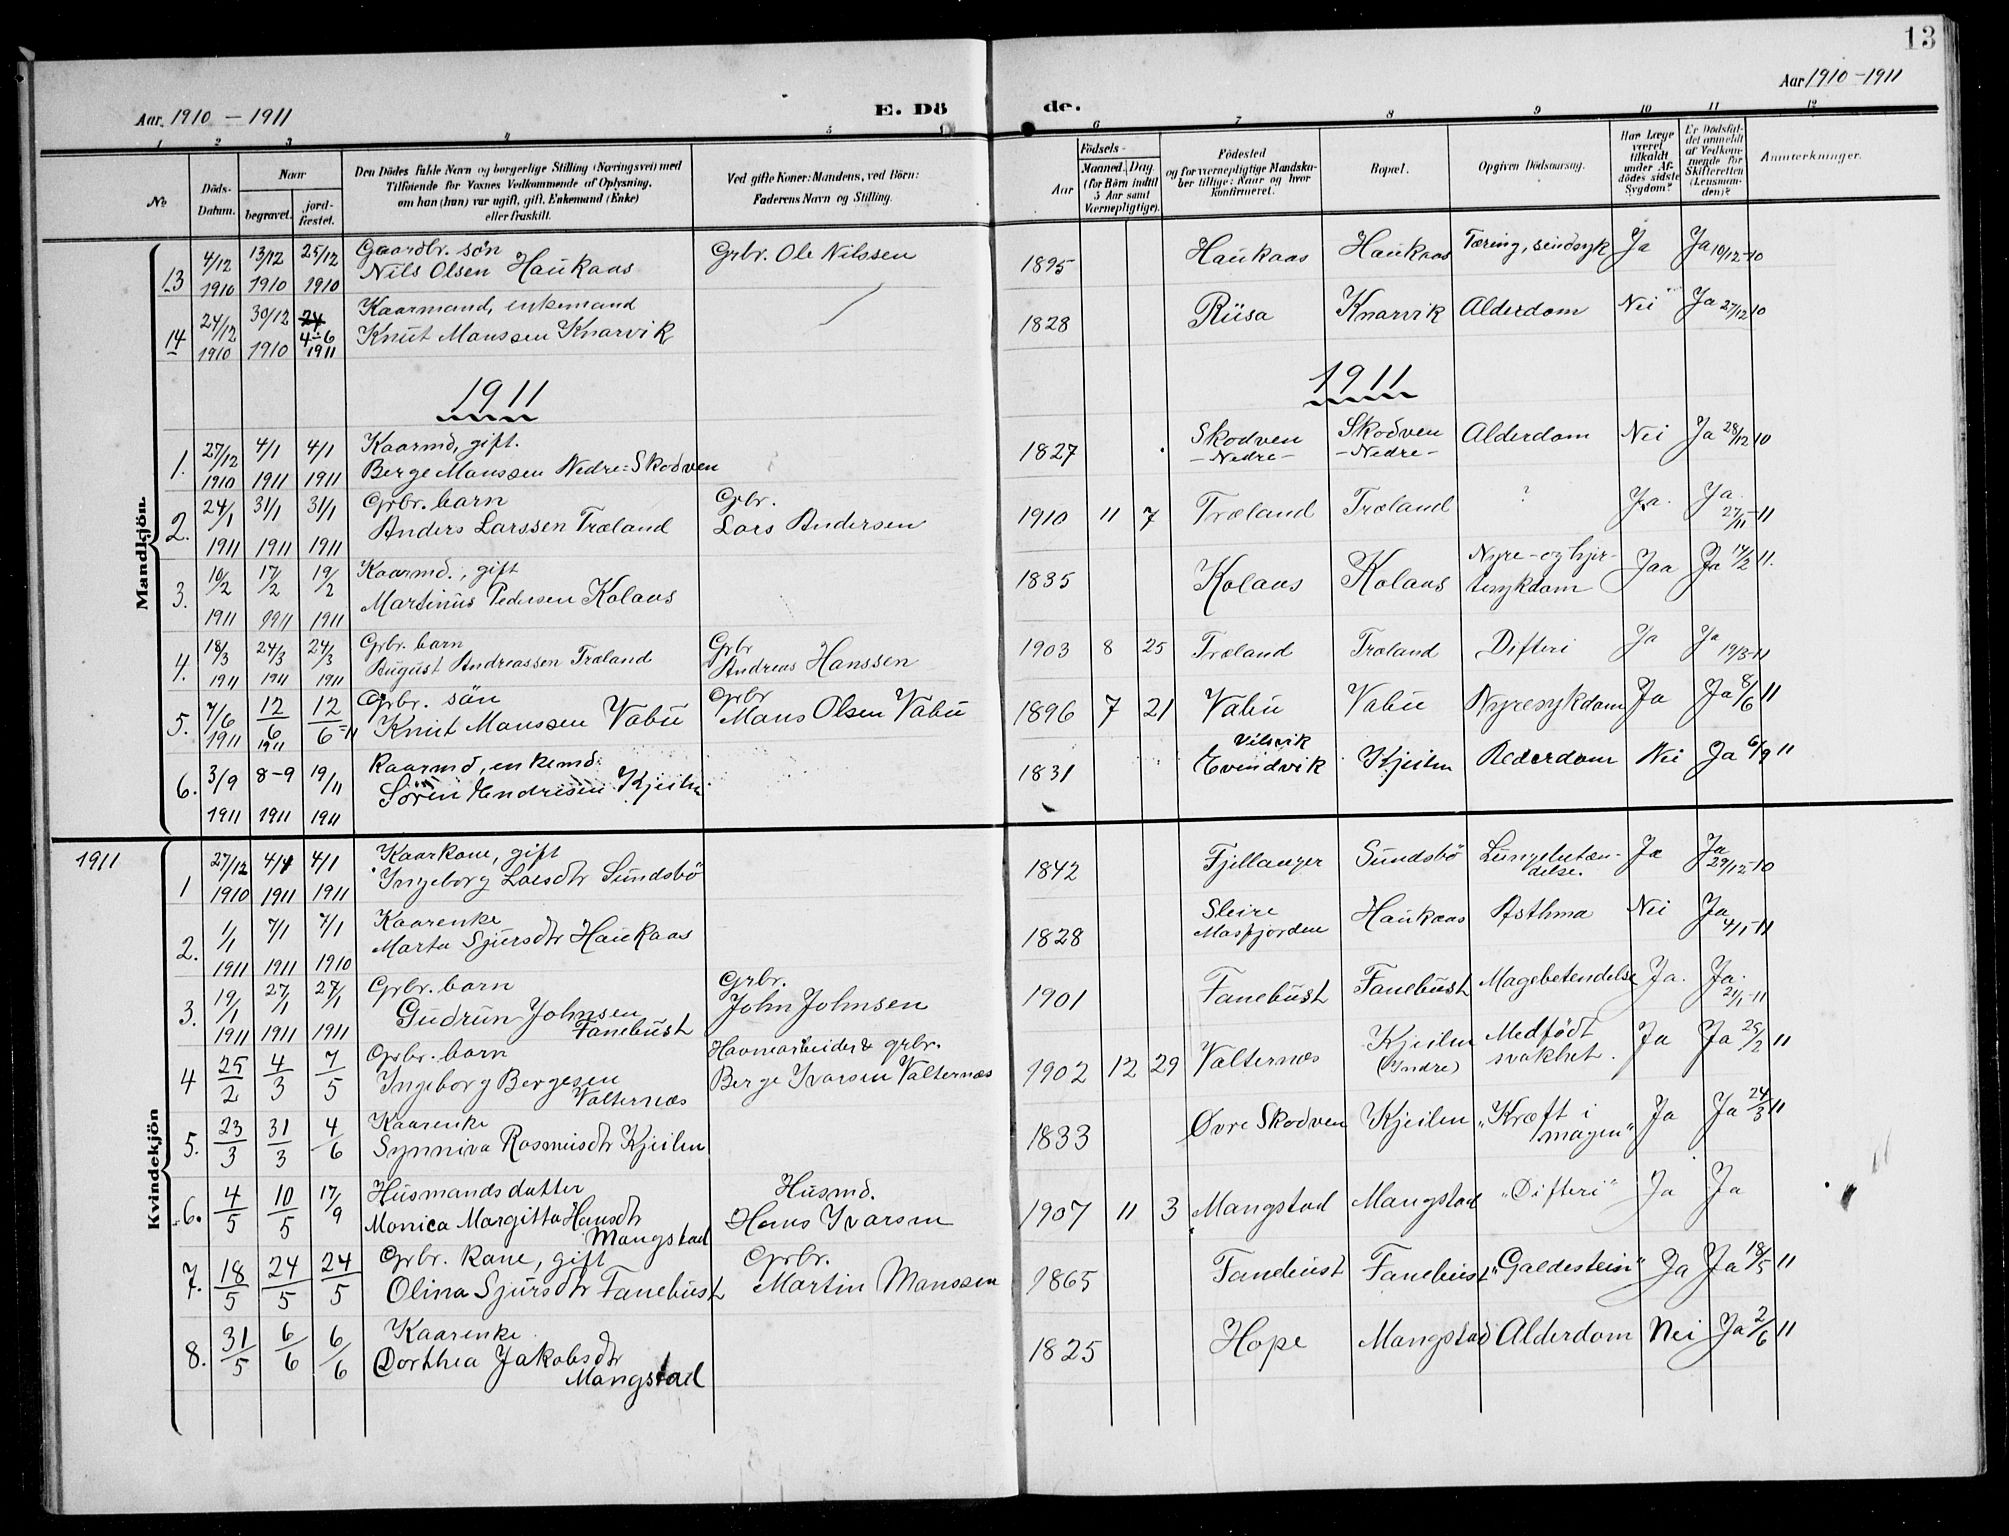 13
Aar 1910 – 1911
E. Dö
de.
Aar 1910 – 1911
1 2 3 4 5 6 7 8 9 10 11 12
No
Döds-
Datum.
Naar
begravet.
jord-
fæstet.
Den Dödes fulde Navn og borgerlige Stilling (Næringsvei) med
Tilföiende for Voxnes Vedkommende af Oplysning,
om han (hun) var ugift, gift, Enkemand (Enke)
eller fraskilt.
Ved gifte Koner: Mandens, ved Börn:
Faderens Navn og Stilling.
Födsels-
Aar
Maaned.
Dag
(for Börn indtil
5 Aar samt
Værnepligtige).
Födested
og for værnepligtige Mandska-
ber tillige: Naar og hvor
konfirmeret.
Bopæl.
Opgiven Dödsaarsag.
Har Læge
været
tilkaldt
under Af-
dödes sidste
Sygdom?
Er Dödsfal-
det anmeldt
af Vedkom-
mende for
Skifteretten
(Lensman-
den)?
Anmærkninger.
Mandkjön.
13 4/12 1910 13/12 1910 25/12 1910 Gaardbr. søn
Nils Olsen Haukaas Grbr. Ole Nilssen 1895 Haukaas Haukaas Tæring, sindsyk Ja Ja 10/12-10
14 24/12 1910 30/12 1910 24 4-6 1911 Kaarmand, enkemand
Knut Manssen Knarvik 1828 Riisa Knarvik Alderdom Nei Ja 27/12 10
1911
1911
1. 27/12 1910 4/1 1911 4/1 1911 Kaarmd, gift.
Berge Manssen Nedre-Skodven 1827 Skodven – Nedre – Skodven – Nedre – Alderdom Nei Ja 28/12 10
2. 24/1 1911 31/1 1911 31/1 1911 Grbr. barn
Anders Larssen Træland Grbr. Lars Andersen 1910 11 7 Træland Træland ? Ja. Ja. 27/11-11
3. 10/2 1911 17/2 1911 19/2 1911 Kaarmd., gift
Martinus Pedersen Kolaas 1835 Kolaas Kolaas Nyre- og hjer-
tesykdom Jaa Ja 14/2 11.
4. 18/3 1911 24/3 1911 24/3 1911 Grbr. barn
August Andreassen Træland Grbr Andreas Hanssen 1903 8 25 Træland Træland Difteri Ja Ja 19/3-11
5. 7/6 1911 12/6 1911 12/6-11 Grbr. sön
Knut Manssen Vabø Grbr Mans Olsen Vabø 1896 7 21 Vabø Vabø Nyresykdom Ja Ja 8/6 11
6. 3/9 1911 8-9 1911 19/11 1911 Kaarmd, enkemd.
Søren Endresen Kjeilen 1831 Evindvik Kjeilen Alderdom Nei Ja 6/9 11
1911
Kvindekjön
1 27/12 1910 4/1 1911 4/1 1911 Kaarkone, gift
Ingeborg Larsdtr Sundsbö 1842 Fjellanger Sundsbö Lungebetæn-
delse. Ja Ja 29/12-10
2. 1/1 1911 7/1 1911 7/1 1910 Kaarenke
Marta Sjursdtr Haukaas 1828 Sleire Masfjorden Haukaas Asthma Nei Ja 4/1-11
3. 19/1 1911 27/1 1911 27/1 1911 Grbr. barn
Gudrun Johnsen
Fanebust Grbr. John Johnsen 1901 Fanebust Fanebust Magebetendelse Ja. Ja. 21/1-11
4 25/2 4/3 7/5 Grbr. barn
Ingeborg Bergesen
Valternæs Havnearbeider & grbr. Berge Ivarsen Valternæs 1902 12 29 Valternæs Kjeilen (Indre) Medfödt
svakhet. Ja Ja 25/2 11
5. 23/3 31/3 4/6 Kaarenke
Synniva Rasmusdtr Kjeilen 1833 Øvre Skodven Kjeilen "Kræft i
magen" Ja Ja 24/3 11
6. 4/5 10/5 17/9 Husmandsdatter
Monica Margitta Hansdtr
Mangstad Husmd. Hans Ivarsen 1907 11 3 Mangstad Mangstad "Difteri" Ja Ja
7. 18/5 24/5 24/5 Grbr. kone, gift
Olina Sjursdtr Fanebust Grbr. Martin Manssen 1865 Fanebust Fanebust "Galdestein" Ja Ja 18/5 11
8. 31/5 6/6 6/6 Kaarenke.
Dorthea Jakobsdtr
Mangstad 1825 Hope Mangstad Alderdom Nei Ja 2/6 11